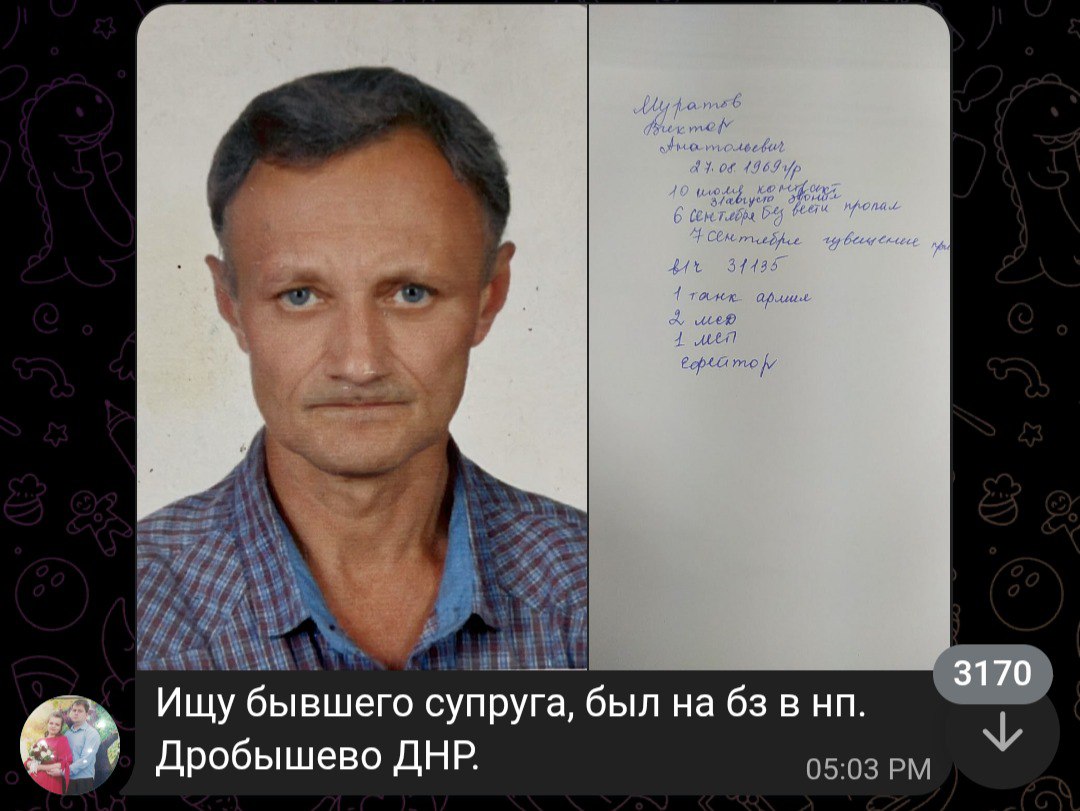 Муратов
Виктор
Анатольевич
27.08.1969г/р
10 июля контракт
31 августа звонил
6 сентября без вести пропал
7 сентября
в/ч 31135
1 танк армия
2 мсд
1 мсп
Ефрейтор
Ищу бывшего супруга, был на бз в нп.
Дробышево ДНР.
05:03 PM
3170